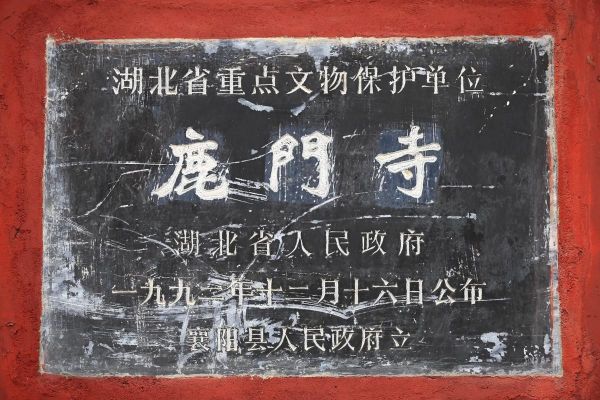 湖北省重点文物保护单位
鹿門寺
湖北省人民政府
一九九二年十二月十六日公布
襄阳县人民政府立